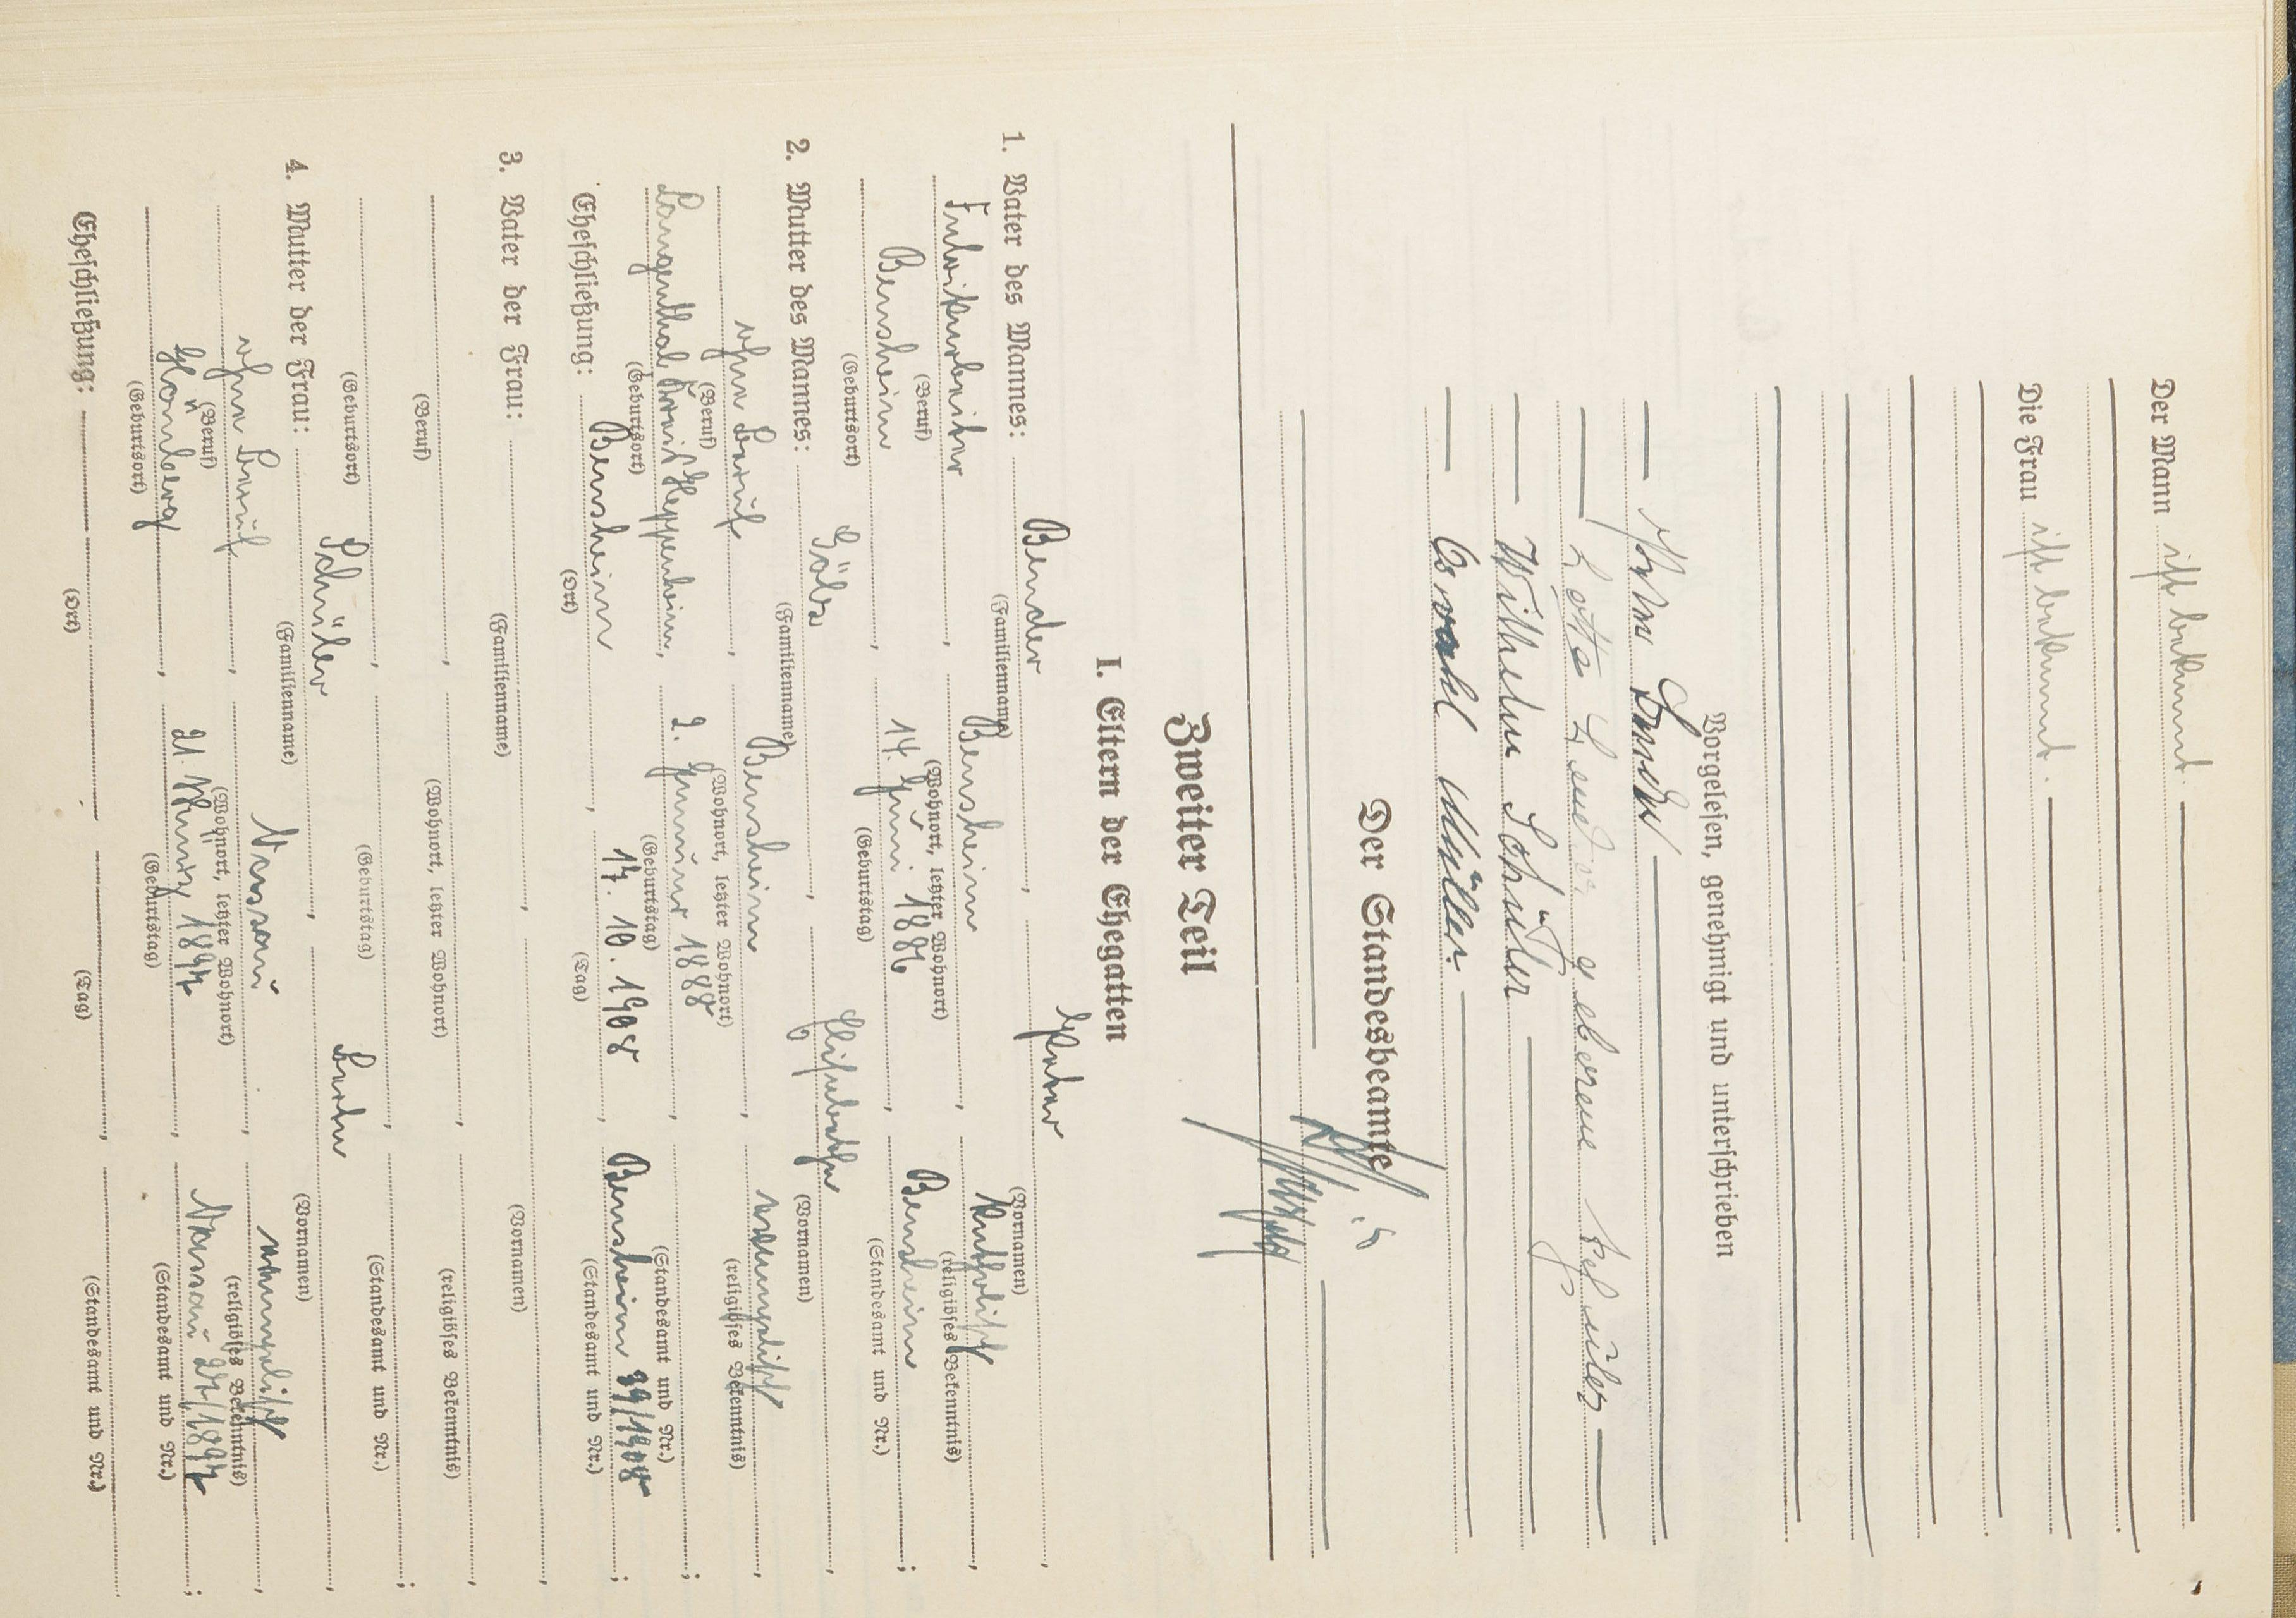 Der Mann ist bekannt.
Die Frau ist bekannt.
Vorgelesen, genehmigt und unterschrieben
Bender
Lotte Bender geborene Schüler
Wilhelm Schüler
Müller
Der Standesbeamte
Zweiter Teil
I. Eltern der Ehegatten
1. Vater des Mannes: Bender
(Familienname) (Vornamen)
Fabrikarbeiter, Bensheim, katholisch,
(Beruf) (Wohnort, letzter Wohnort) (religiöses Bekenntnis)
Bensheim, 14. Juni 1886, Bensheim;
(Geburtsort) (Geburtstag) (Standesamt und Nr.)
2. Mutter des Mannes: Göbs,
(Familienname) (Vornamen)
ohne Beruf, Bensheim, evangelisch,
(Beruf) (Wohnort, letzter Wohnort) (religiöses Bekenntnis)
Langenthal Kreis Heppenheim, 2. Januar 1888;
(Geburtsort) (Geburtstag) (Standesamt und Nr.)
Eheschließung: Bensheim, 17. 10. 1908, Bensheim 39/1908;
(Ort) (Tag) (Standesamt und Nr.)
3. Vater der Frau:
(Familienname) (Vornamen)
(Beruf) (Wohnort, letzter Wohnort) (religiöses Bekenntnis)
(Geburtsort) (Geburtstag) (Standesamt und Nr.)
4. Mutter der Frau: Schüler,
(Familienname) (Vornamen)
ohne Beruf, evangelisch,
(Beruf) (Wohnort, letzter Wohnort) (religiöses Bekenntnis)
21. März 1897,
(Geburtsort) (Geburtstag) (Standesamt und Nr.)
Eheschließung:
(Ort) (Tag) (Standesamt und Nr.)